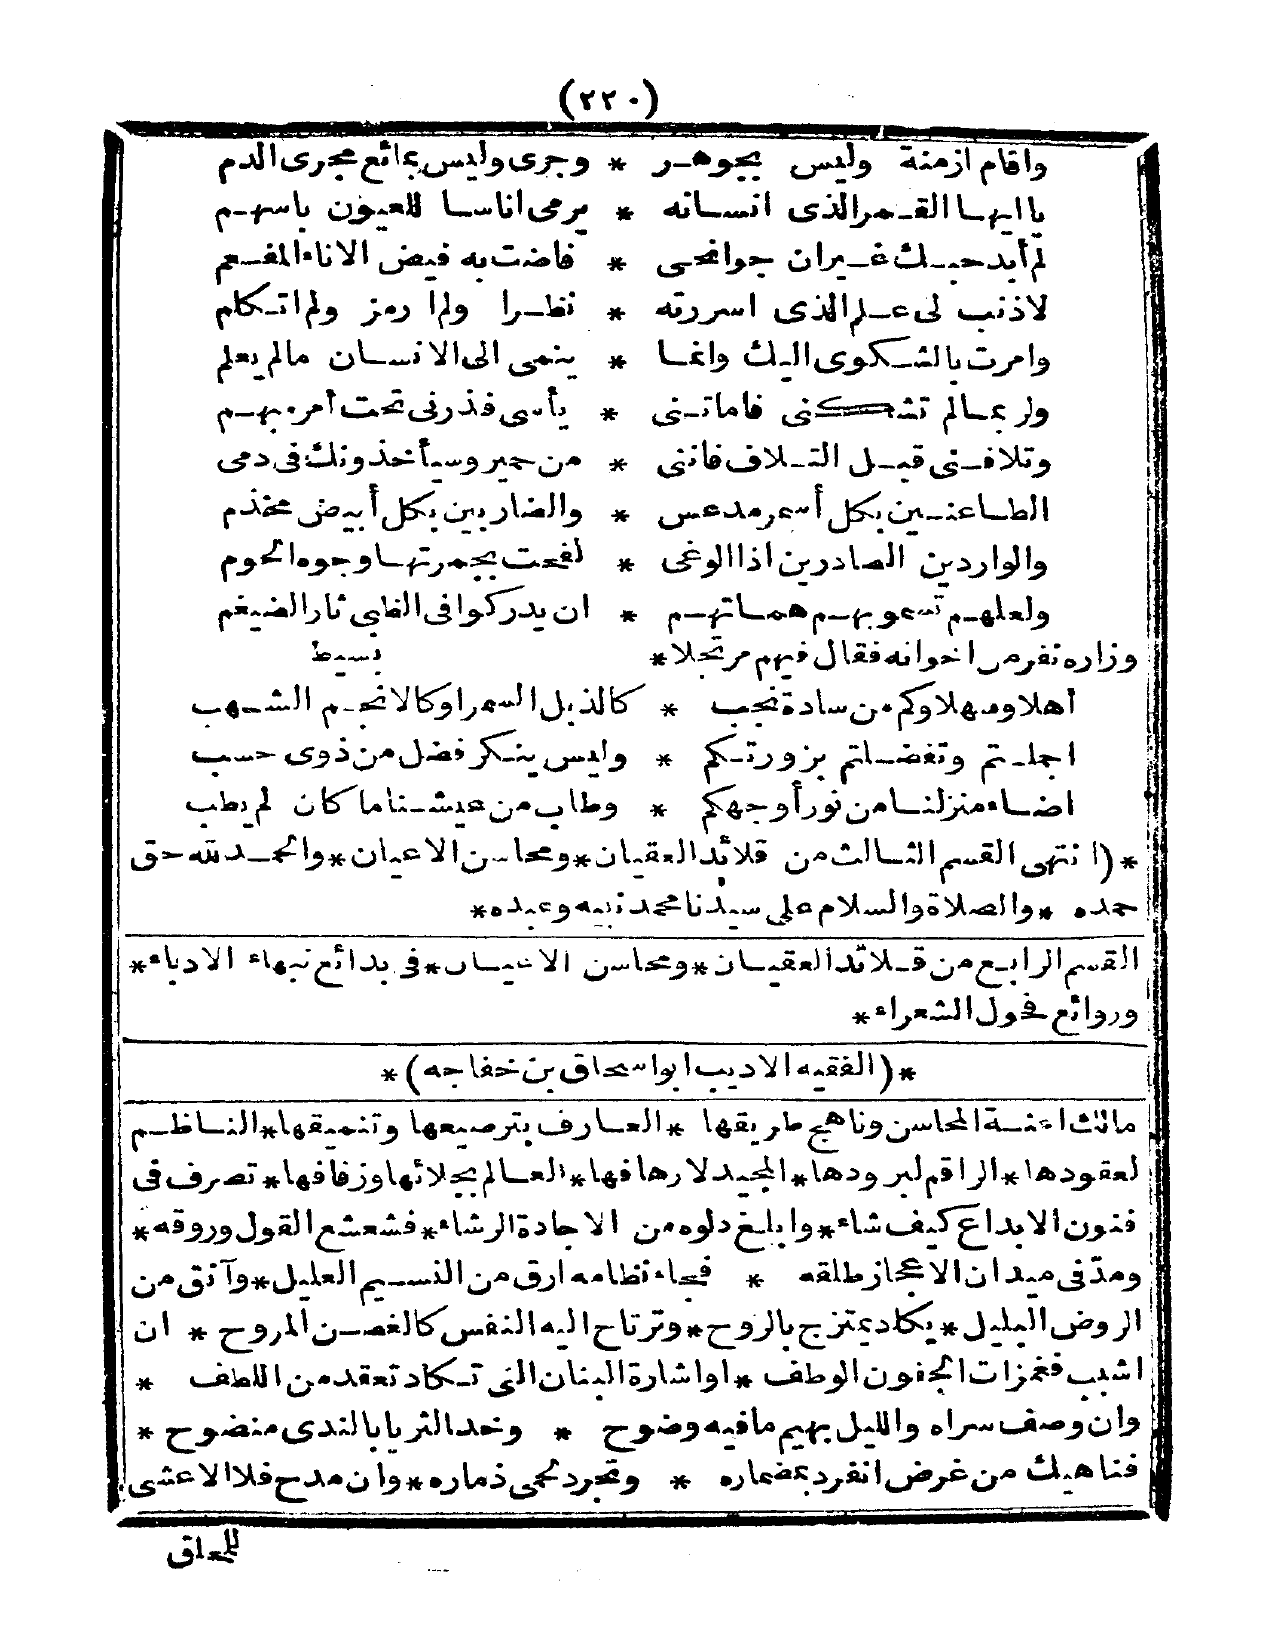 (٢٢٠)
واقام ازمنة وليس بجوهر * وجرى وليس بمائع مجرى الدم
يا ايها القمر الذى انسانه * يرمى اناسا للعيون باسهم
لم أبد حبك غير ان جوانحى * فاضت به فيض الاناء المفعم
لاذنب لى علم الذى اسررته * نظرا ولم ارمز ولم اتكلم
وامرت بالشكوى اليك وانما * ينمى الى الانسان مالم يعلم
ولربما لم تشكنى فاماتنى * يأسى فذرنى تحت أمر مبهم
وتلافنى قبل التلاف فاننى * من حمير وسيأخذونك فى دمى
الطاعنين بكل أسمر مدعس * والضاربين بكل أبيض مخذم
والواردين الصادرين اذا الوغى * لفحت بجمرتها وجوه الحوم
ولعلهم تسمو بهم هماتهم * ان يدركوا فى الظبى ثار الضيغم
وزاره نفر من اخوانه فقال فيهم مرتجلا * بسيط
أهلا وسهلا وكم من سادة نجب * كالذبل السمر او كالانجم الشهب
اجملتم وتفضلتم بزورتكم * وليس ينكر فضل من ذوى حسب
اضاء منزلنا من نور أوجهكم * وطاب من عيشنا ما كان لم يطب
*(انتهى القسم الثالث من قلائد العقيان * ومحاسن الاعيان * والحمد لله حق
حمده * والصلاة والسلام على سيدنا محمد نبيه وعبده *
القسم الرابع من قلائد العقيان * ومحاسن الاعيان * فى بدائع نبهاء الادباء *
وروائع فحول الشعراء *
*(الفقيه الاديب ابواسحاق بن خفاجه)*
مالك اعنة المحاسن وناهج طريقها * العارف بترصيعها وتنميقها * الناظم
لعقودها * الراقم لبرودها * المجيد لارهافها * العالم بجلائها وزفافها * تصرف فى
فنون الابداع كيف شاء * وابلغ دلوه من الاجادة الرشاء * فشعشع القول وروقه *
ومدّ فى ميدان الاعجاز طلقه * فجاء نظامه ارق من النسيم العليل * وآنق من
الروض البليل * يكاد يمتزج بالروح * وترتاح اليه النفس كالغصن المروح * ان
اشبب فغمزات الجفون الوطف * او اشارة البنان التى تكاد تعقد من اللطف *
وان وصف سراه والليل بهيم مافيه وضوح * وخد الثريا بالندى منضوح *
فناهيك من غرض انفرد بمضماره * وتجرد لحمى ذماره * وان مدح فلا الاعشى
للمحلق